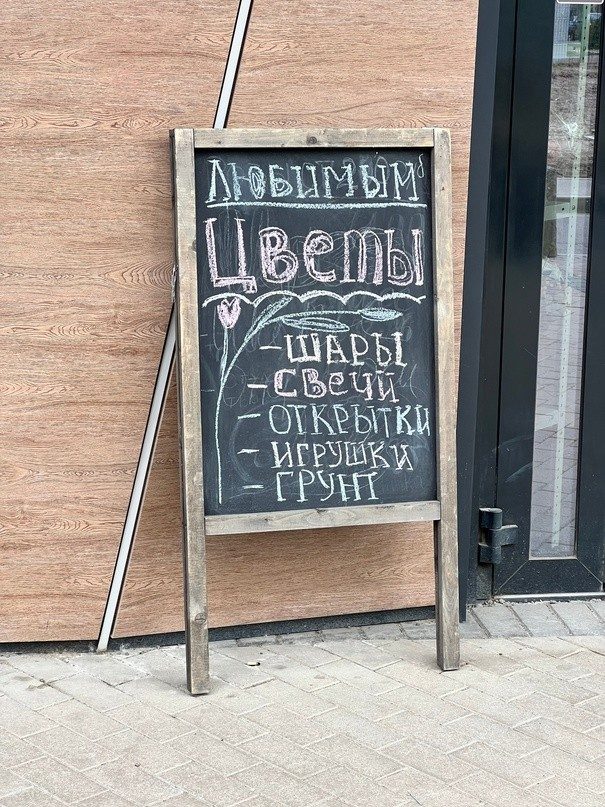 ЛЮБИМЫМ
Цветы
- ШАРЫ
- СВЕЧИ
- ОТКРЫТКИ
- ИГРУШКИ
- ГРУНТ